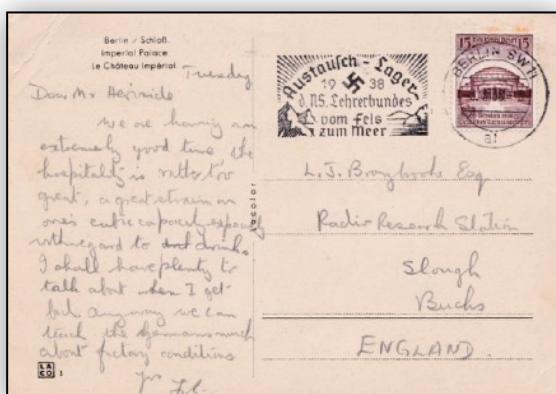 Berlin / Schloß.
Imperial Palace
Le Château Impérial.
Tuesday
Dear Mr
We are having an
extremely good time the
hospitality is rather too
great, a great strain on
one's capacity especially
with regard to drinks
I shall have plenty to
talk about when I get
back anyway we can
teach the Germans much
about factory conditions
yrs
LACO 1
lacolor
Austausch-Lager
1938
d. NS. Lehrerbundes
vom Fels
zum Meer
15 15
BERLIN SW 11
L. J. Braybrooke Esq
Radio Research Station
Slough
Bucks
ENGLAND.